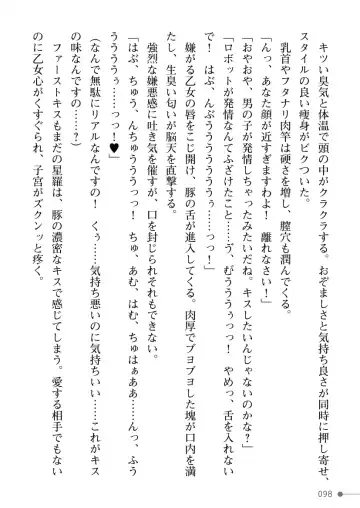 キツい臭気と体温で頭の中がクラクラする。おぞましさと気持ち良さが同時に押し寄せ、
スタイルの良い痩身がビクついた。
乳首やフタナリ肉竿は硬さを増し、膣穴も潤んでくる。
「んっ、あなた顔が近すぎますわよ！　離れなさい！」
「おやおや、男の子が発情しちゃったみたいだね。キスしたいんじゃないのかな？」
「ロボットが発情なんてふざけたこと……う、むぅううぅっっ！　やめっ、舌を入れない
で！　はぶっ、んぶぅうううううぅっっ！」
嫌がる乙女の唇をこじ開け、豚の舌が進入してくる。肉厚でブヨブヨした塊が口内を満
たし、生臭い匂いが脳天を直撃する。
強烈な嫌悪感に吐き気を催すが、口を封じられそれもできない。
「はぶ、ちゅう、んちゅうううっっ！　ちゅ、あむ、はむ、ちゅはぁああ……んっ、ふう
うううぅ……っっ！♥」
（なんで無駄にリアルなんですの！　くぅ……気持ち悪いのに気持ちいい……これがキス
の味なんですの……？）
ファーストキスもまだの星羅は、豚の濃密なキスで感じてしまう。愛する相手でもない
のに乙女心がくすぐられ、子宮がズクンっと疼く。
098